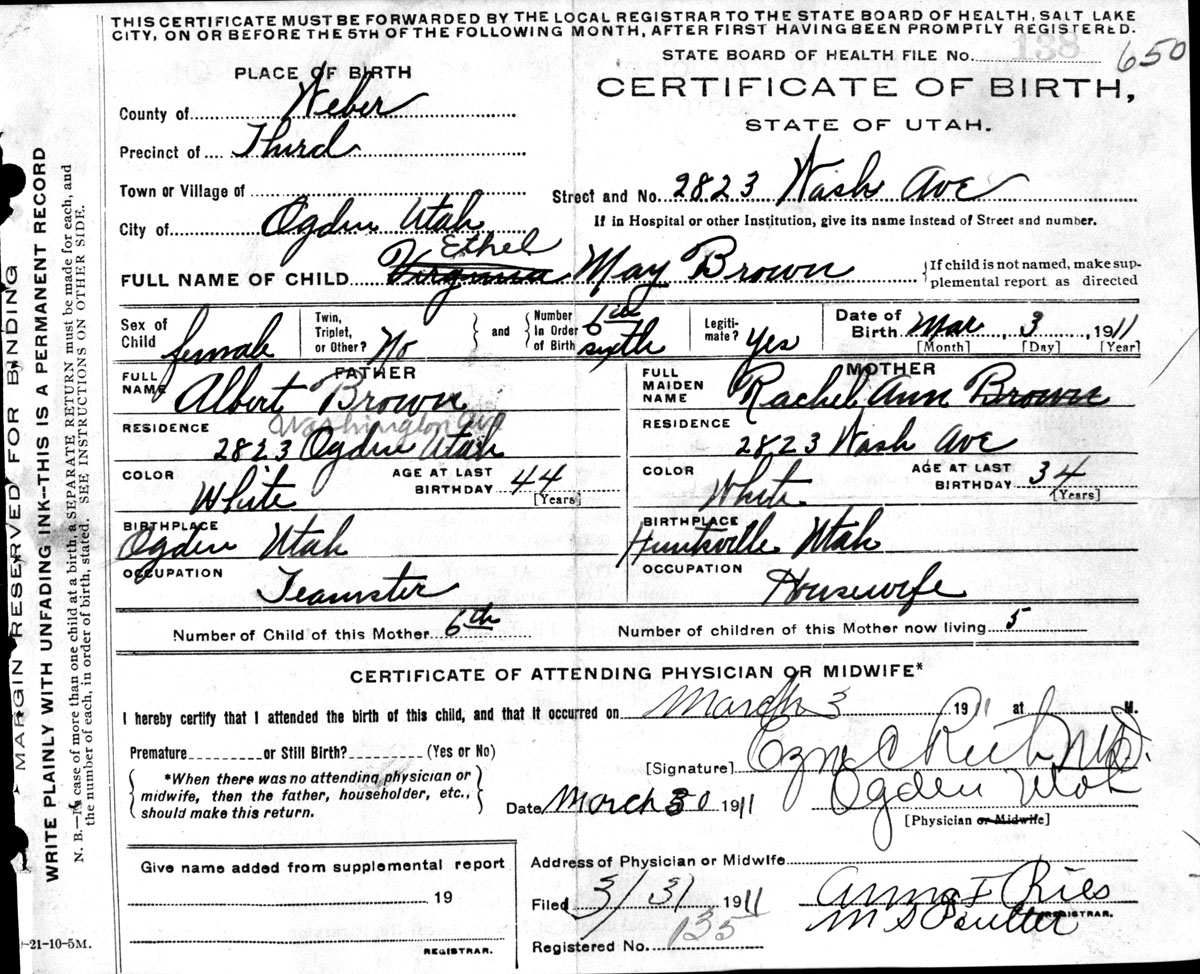 THIS CERTIFICATE MUST BE FORWARDED BY THE LOCAL REGISTRAR TO THE STATE BOARD OF HEALTH, SALT LAKE
CITY, ON OR BEFORE THE 5TH OF THE FOLLOWING MONTH, AFTER FIRST HAVING BEEN PROMPTLY REGISTERED.
STATE BOARD OF HEALTH FILE No. 138 650
PLACE OF BIRTH
CERTIFICATE OF BIRTH,
STATE OF UTAH.
County of Weber
Precinct of Third
Town or Village of
Street and No. 2823 Wash Ave
City of Ogden Utah
If in Hospital or other Institution, give its name instead of Street and number.
Ethel
FULL NAME OF CHILD Virginia May Brown
If child is not named, make sup-
plemental report as directed
Sex of Child female
Twin, Triplet, or Other? No
and
Number In Order of Birth 6th sixth
Legiti- mate? Yes
Date of Birth Mar 3 1911
[Month] [Day] [Year]
FATHER
FULL NAME Albert Brown
MOTHER
FULL MAIDEN NAME Rachel Ann Brown
Washington Ave
RESIDENCE 2823 Ogden Utah
RESIDENCE 2823 Wash Ave
COLOR White
AGE AT LAST BIRTHDAY 44 [Years]
COLOR White
AGE AT LAST BIRTHDAY 34 [Years]
BIRTHPLACE Ogden Utah
BIRTHPLACE Huntsville Utah
OCCUPATION Teamster
OCCUPATION Housewife
Number of Child of this Mother 6th
Number of children of this Mother now living 5
CERTIFICATE OF ATTENDING PHYSICIAN OR MIDWIFE*
I hereby certify that I attended the birth of this child, and that it occurred on March 3 1911 at M.
Premature or Still Birth? (Yes or No)
[Signature] M.D.
*When there was no attending physician or
midwife, then the father, householder, etc.,
should make this return.
Date March 30 1911
Ogden Utah
[Physician or Midwife]
Give name added from supplemental report
19
REGISTRAR.
Address of Physician or Midwife
Filed 3/31 1911
Registered No. 135
REGISTRAR.
-21-10-5M.
MARGIN RESERVED FOR BINDING
WRITE PLAINLY WITH UNFADING INK—THIS IS A PERMANENT RECORD
N. B.—In case of more than one child at a birth, a SEPARATE RETURN must be made for each, and
the number of each, in order of birth, stated. SEE INSTRUCTIONS ON OTHER SIDE.